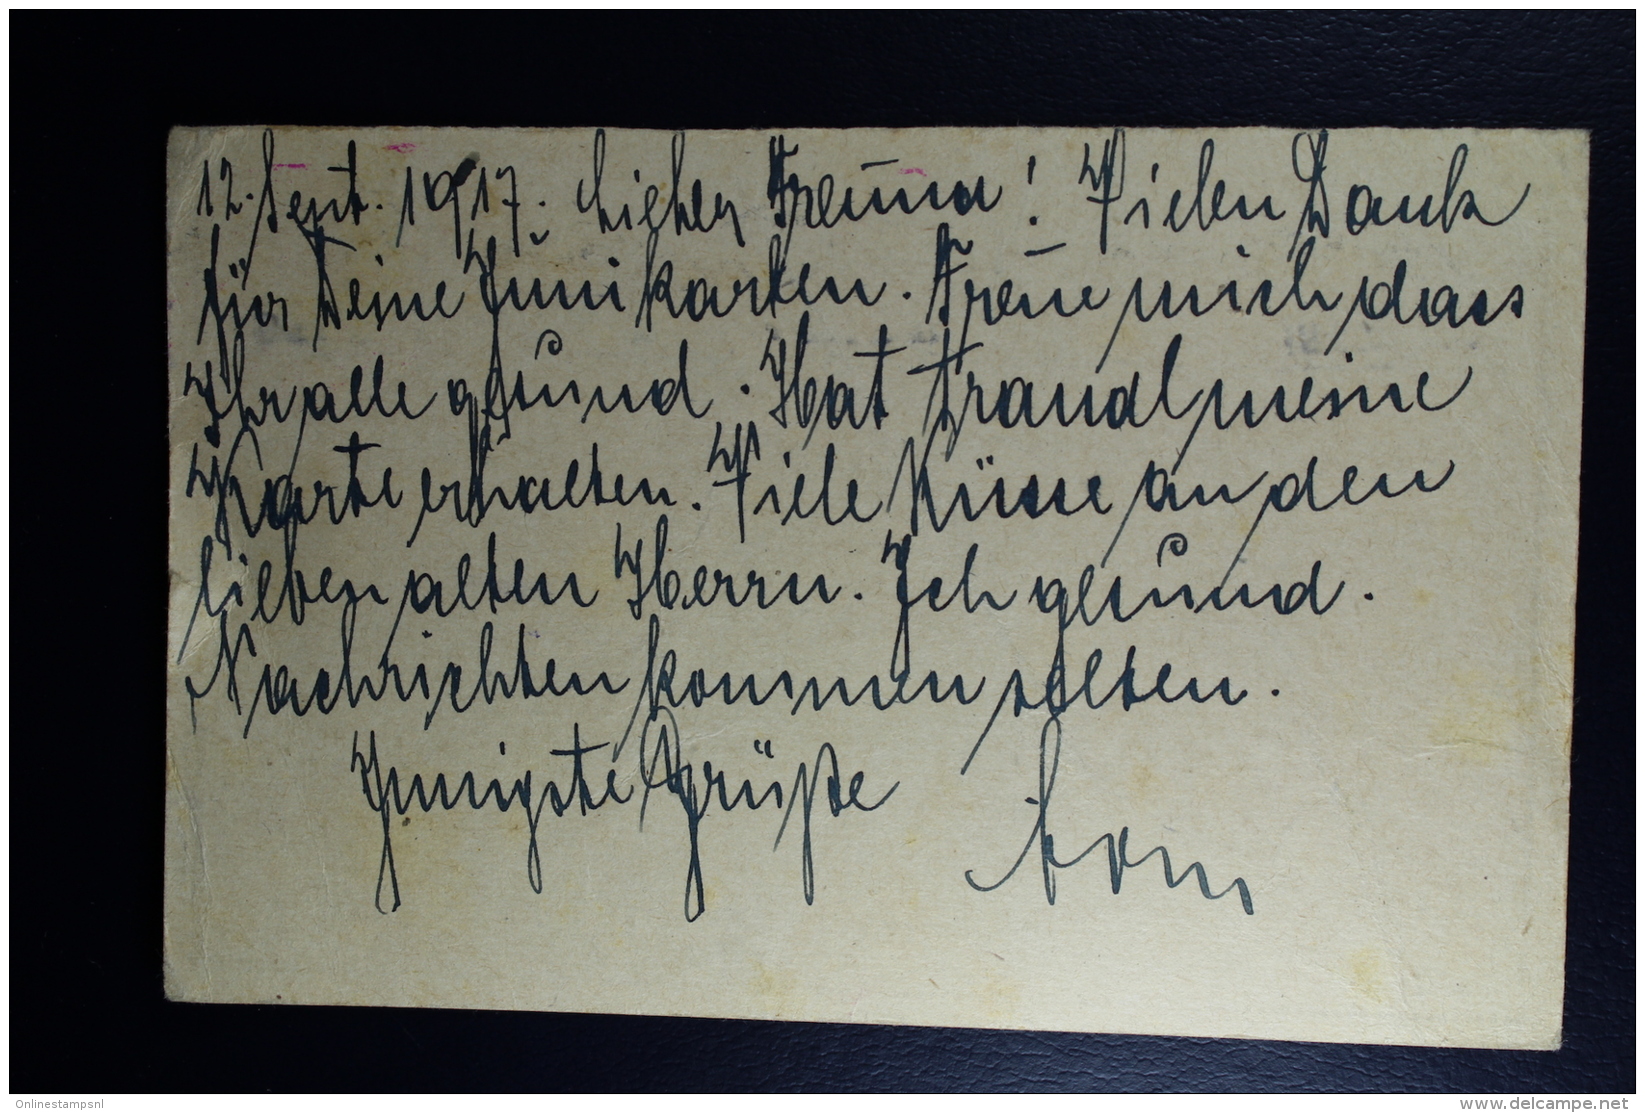 12. Sept. 1917. Lieber Freund! Vielen Dank
für Deine Junikarten. Freue mich dass
Ihr alle gesund. Hat Traudl meine
Karte erhalten. Viele Küsse an den
lieben alten Herrn. Ich gesund.
Nachrichten kommen selten.
Innigste Grüße
Onlinestampsnl
www.delcampe.net